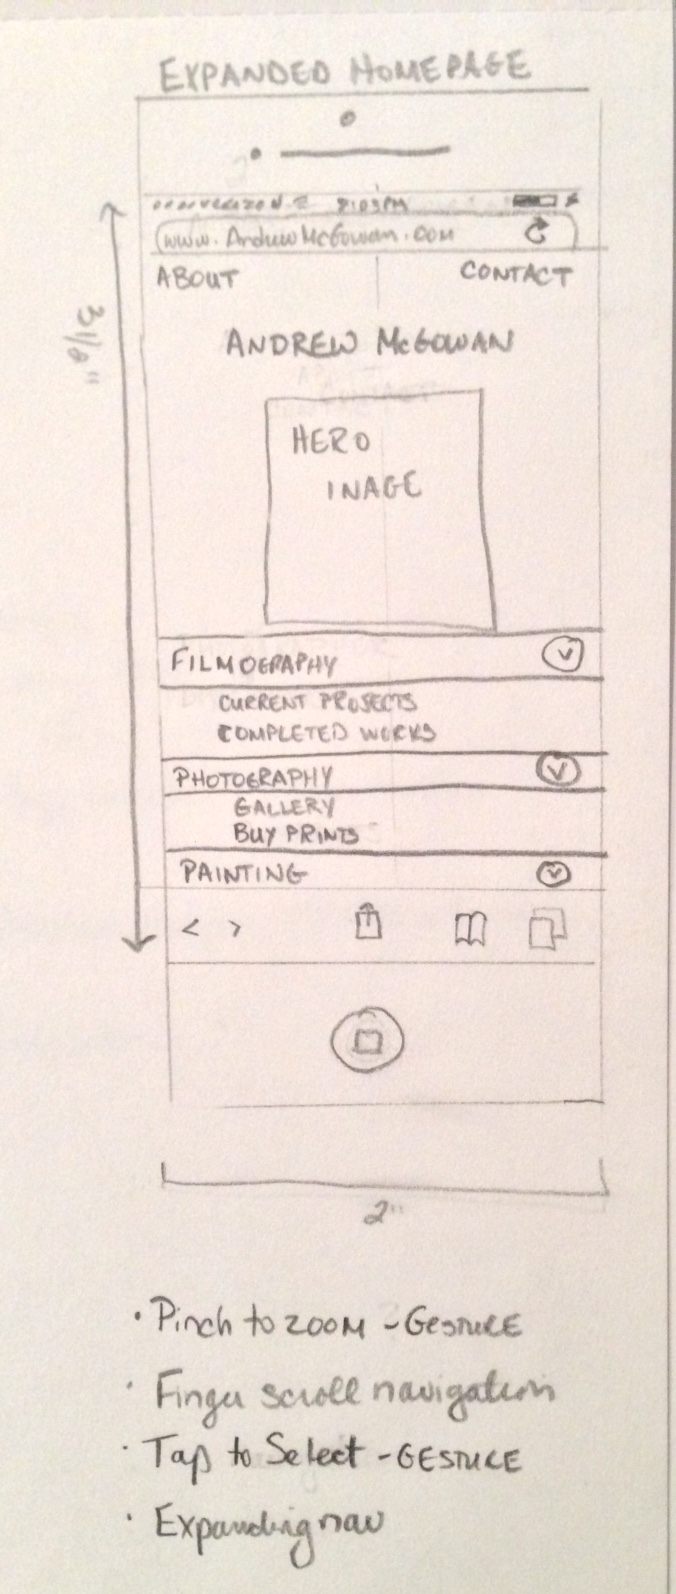 EXPANDED HOMEPAGE
VERIZON
www.AndrewMcGowan.com
ABOUT CONTACT
ANDREW McGOWAN
HERO
INAGE
FILMOGRAPHY
CURRENT PROJECTS
COMPLETED WORKS
PHOTOGRAPHY
GALLERY
BUY PRINTS
PAINTING
< >
2"
• Pinch to ZOOM - GESTURE
• Finger scroll navigation
• Tap to Select - GESTURE
• Expanding nav